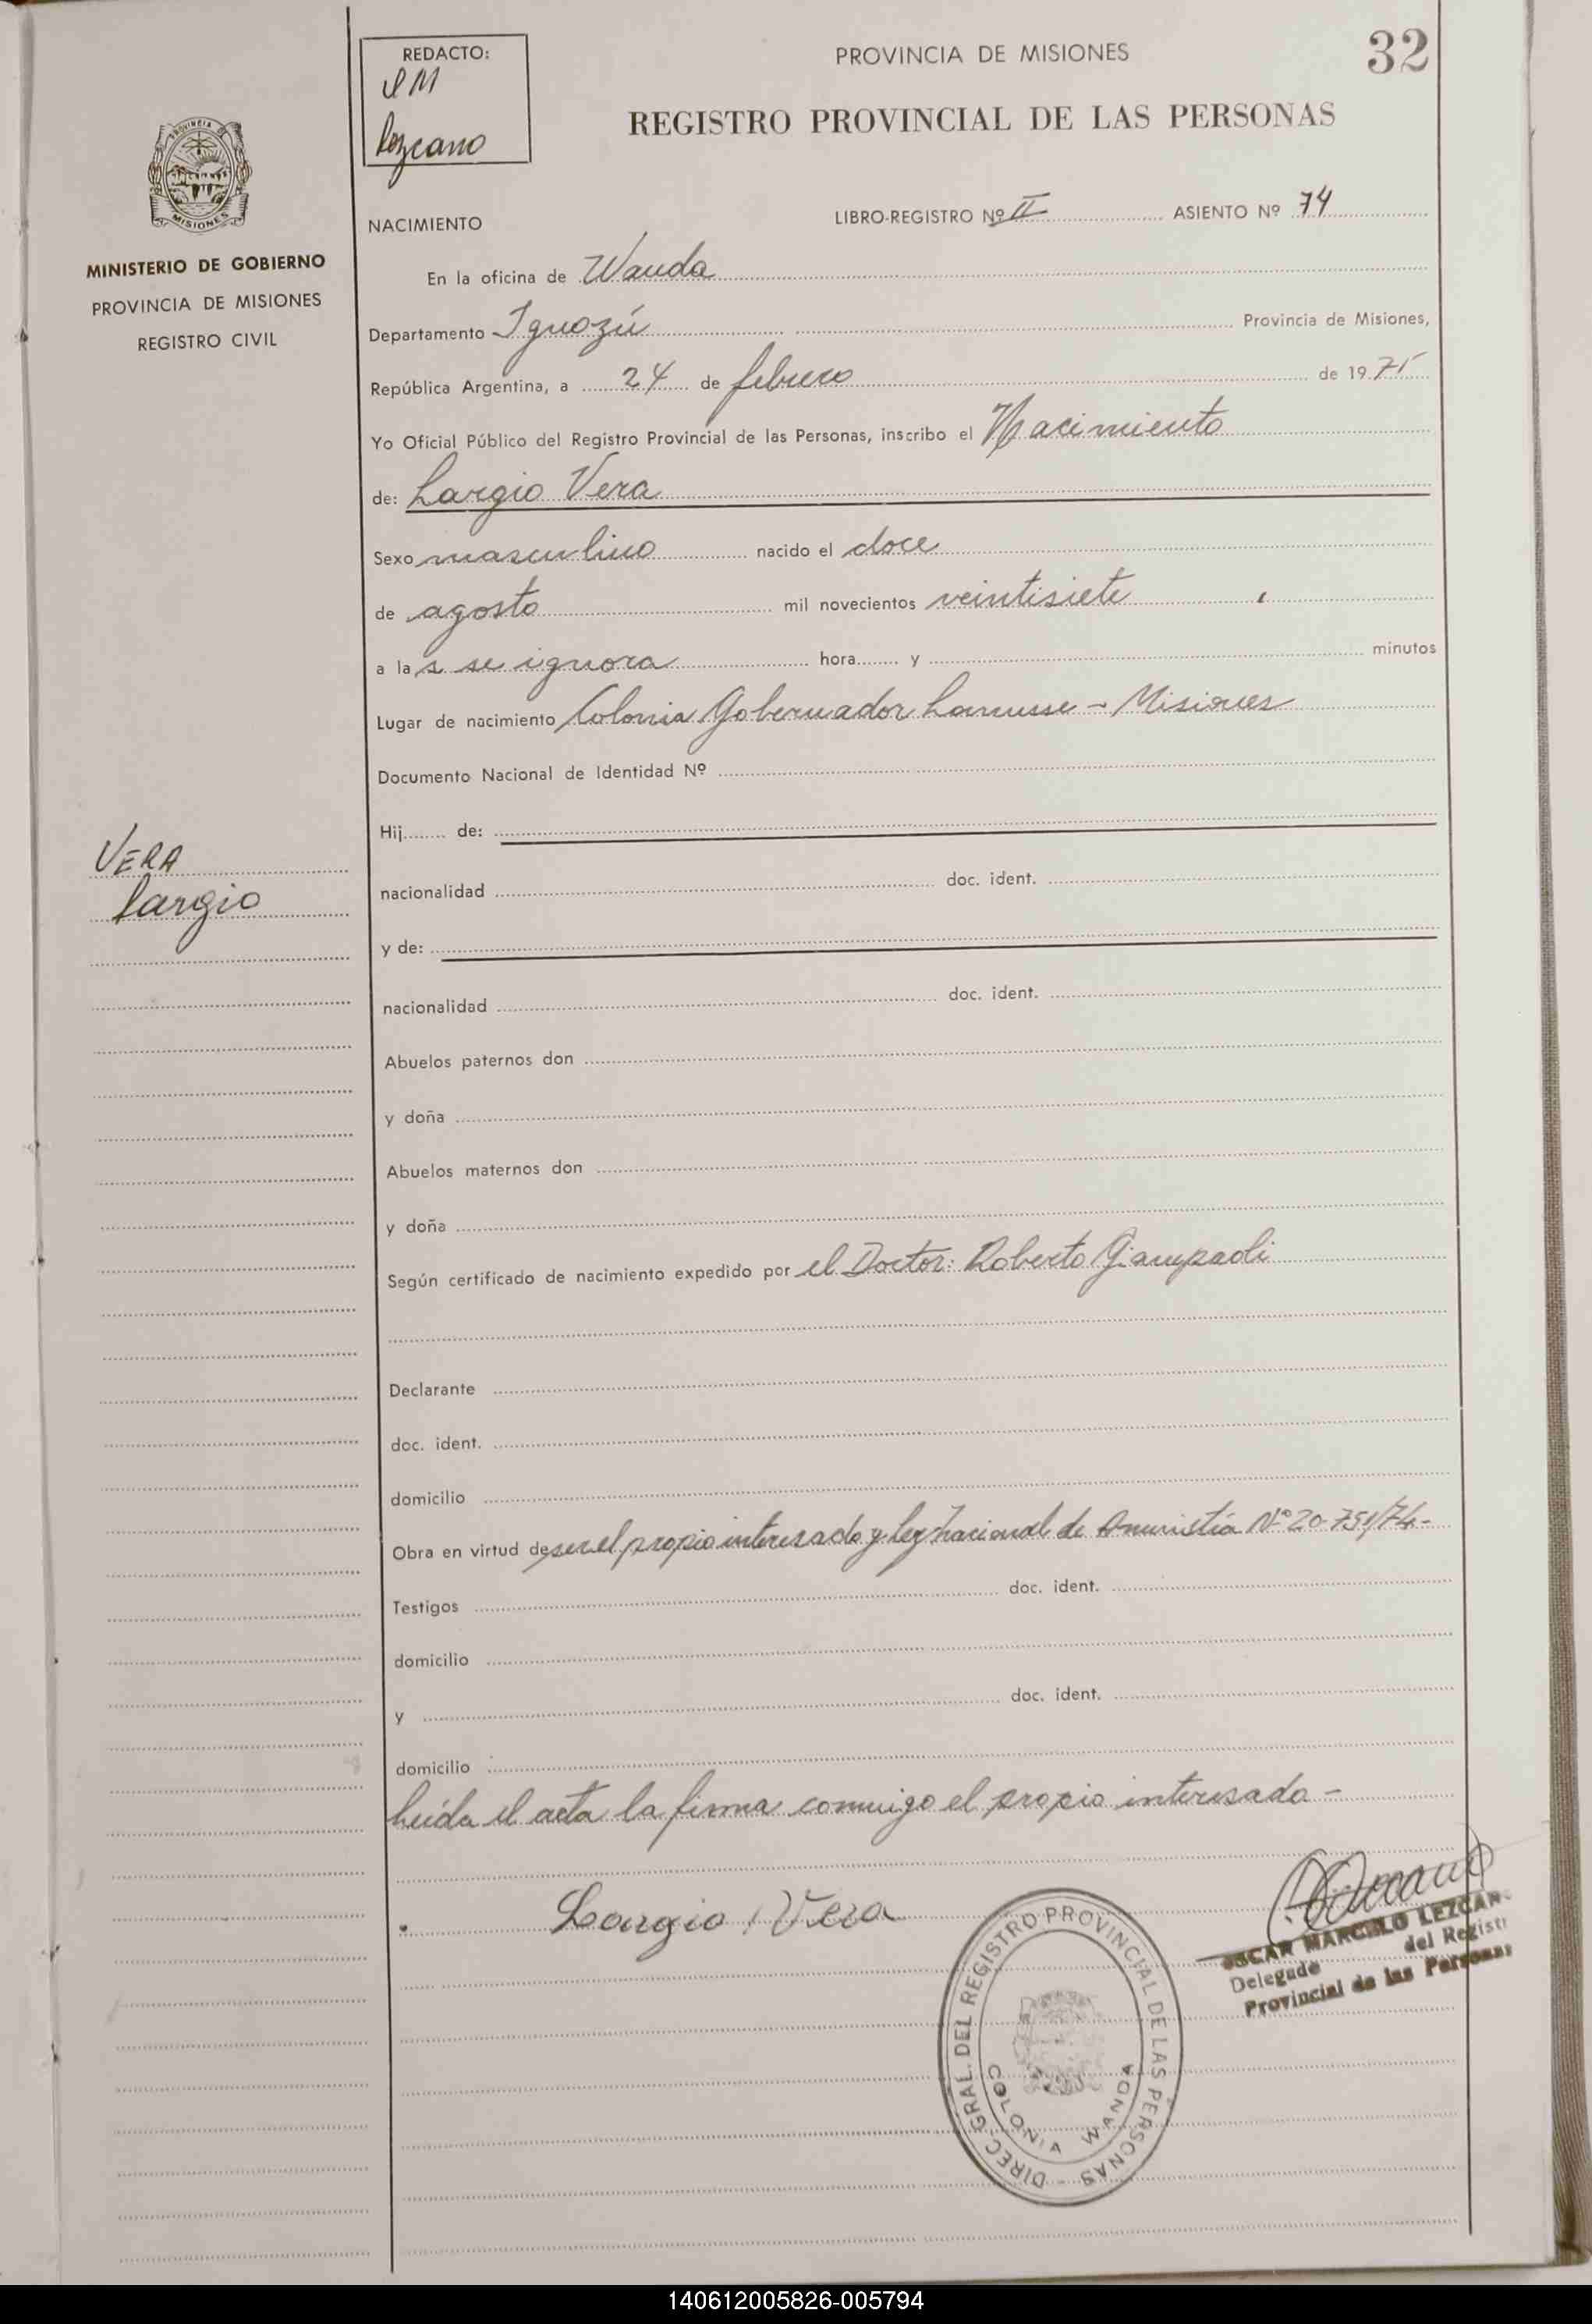 32
REDACTO:
lezcano
PROVINCIA DE MISIONES
REGISTRO PROVINCIAL DE LAS PERSONAS
PROVINCIA DE
MISIONES
MINISTERIO DE GOBIERNO
PROVINCIA DE MISIONES
REGISTRO CIVIL
NACIMIENTO
LIBRO-REGISTRO Nº II ASIENTO Nº 74
En la oficina de Wanda
Departamento Iguazú Provincia de Misiones,
República Argentina, a 24 de febrero de 1975
Yo Oficial Público del Registro Provincial de las Personas, inscribo el Nacimiento
de: Largio Vera
Sexo masculino nacido el doce
de agosto mil novecientos veintisiete
a las se ignora hora y minutos
Lugar de nacimiento Colonia Gobernador Lanusse - Misiones
Documento Nacional de Identidad Nº
Hij de:
VERA
Largio
nacionalidad doc. ident.
y de:
nacionalidad doc. ident.
Abuelos paternos don
y doña
Abuelos maternos don
y doña
Según certificado de nacimiento expedido por el Doctor: Roberto Giampaoli
Declarante
doc. ident.
domicilio
Obra en virtud de ser el propio interesado y Ley Nacional de Amnistía Nº 20.751/74-
Testigos doc. ident.
domicilio
y doc. ident.
domicilio
Leída el acta la firma conmigo el propio interesado -
Largio Vera
DIREC. GRAL. DEL REGISTRO PROVINCIAL DE LAS PERSONAS -
COLONIA WANDA
OSCAR MARCELO LEZCAN
Delegado del Registr
Provincial de las Personas
140612005826-005794